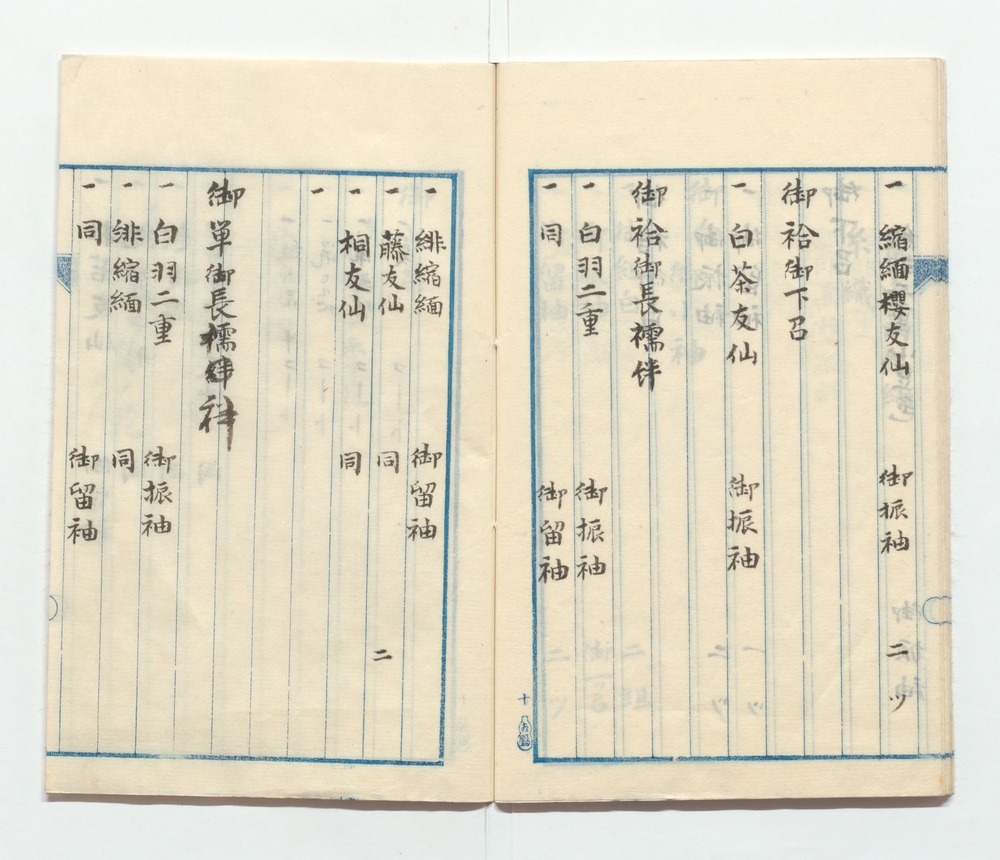 一 縮緬櫻友仙 御振袖 二ツ
御袷御下召
一 白茶友仙 御振袖
御袷御長襦袢
一 白羽二重 御振袖
一 同 御留袖
十
一 緋縮緬 御留袖
一 藤友仙 同 二
一 桐友仙 同
一
御単御長襦袢
一 白羽二重 御振袖
一 緋縮緬 同
一 同 御留袖